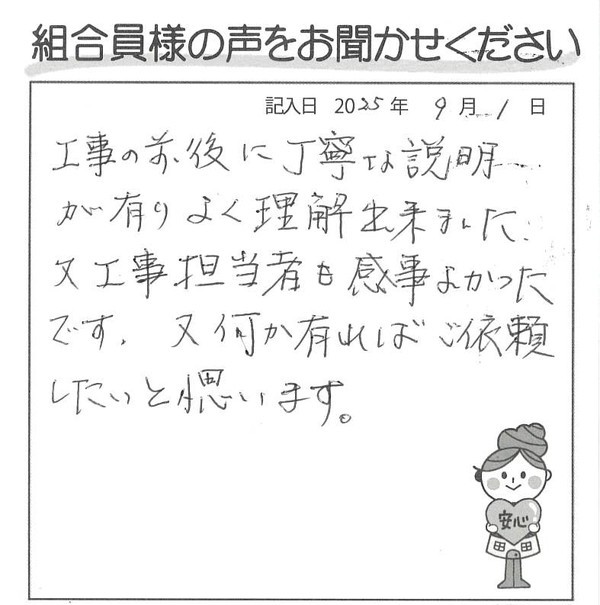 組合員様の声をお聞かせください
記入日 2025年 9月 1日
工事の前後に丁寧な説明
が有りよく理解出来ました.
又工事担当者も感事よかった
です. 又何か有ればご依頼
したいと思います。
安心